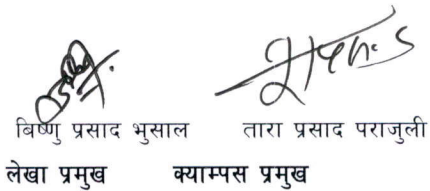 बिष्णु प्रसाद भुसाल तारा प्रसाद पराजुली
लेखा प्रमुख क्याम्पस प्रमुख